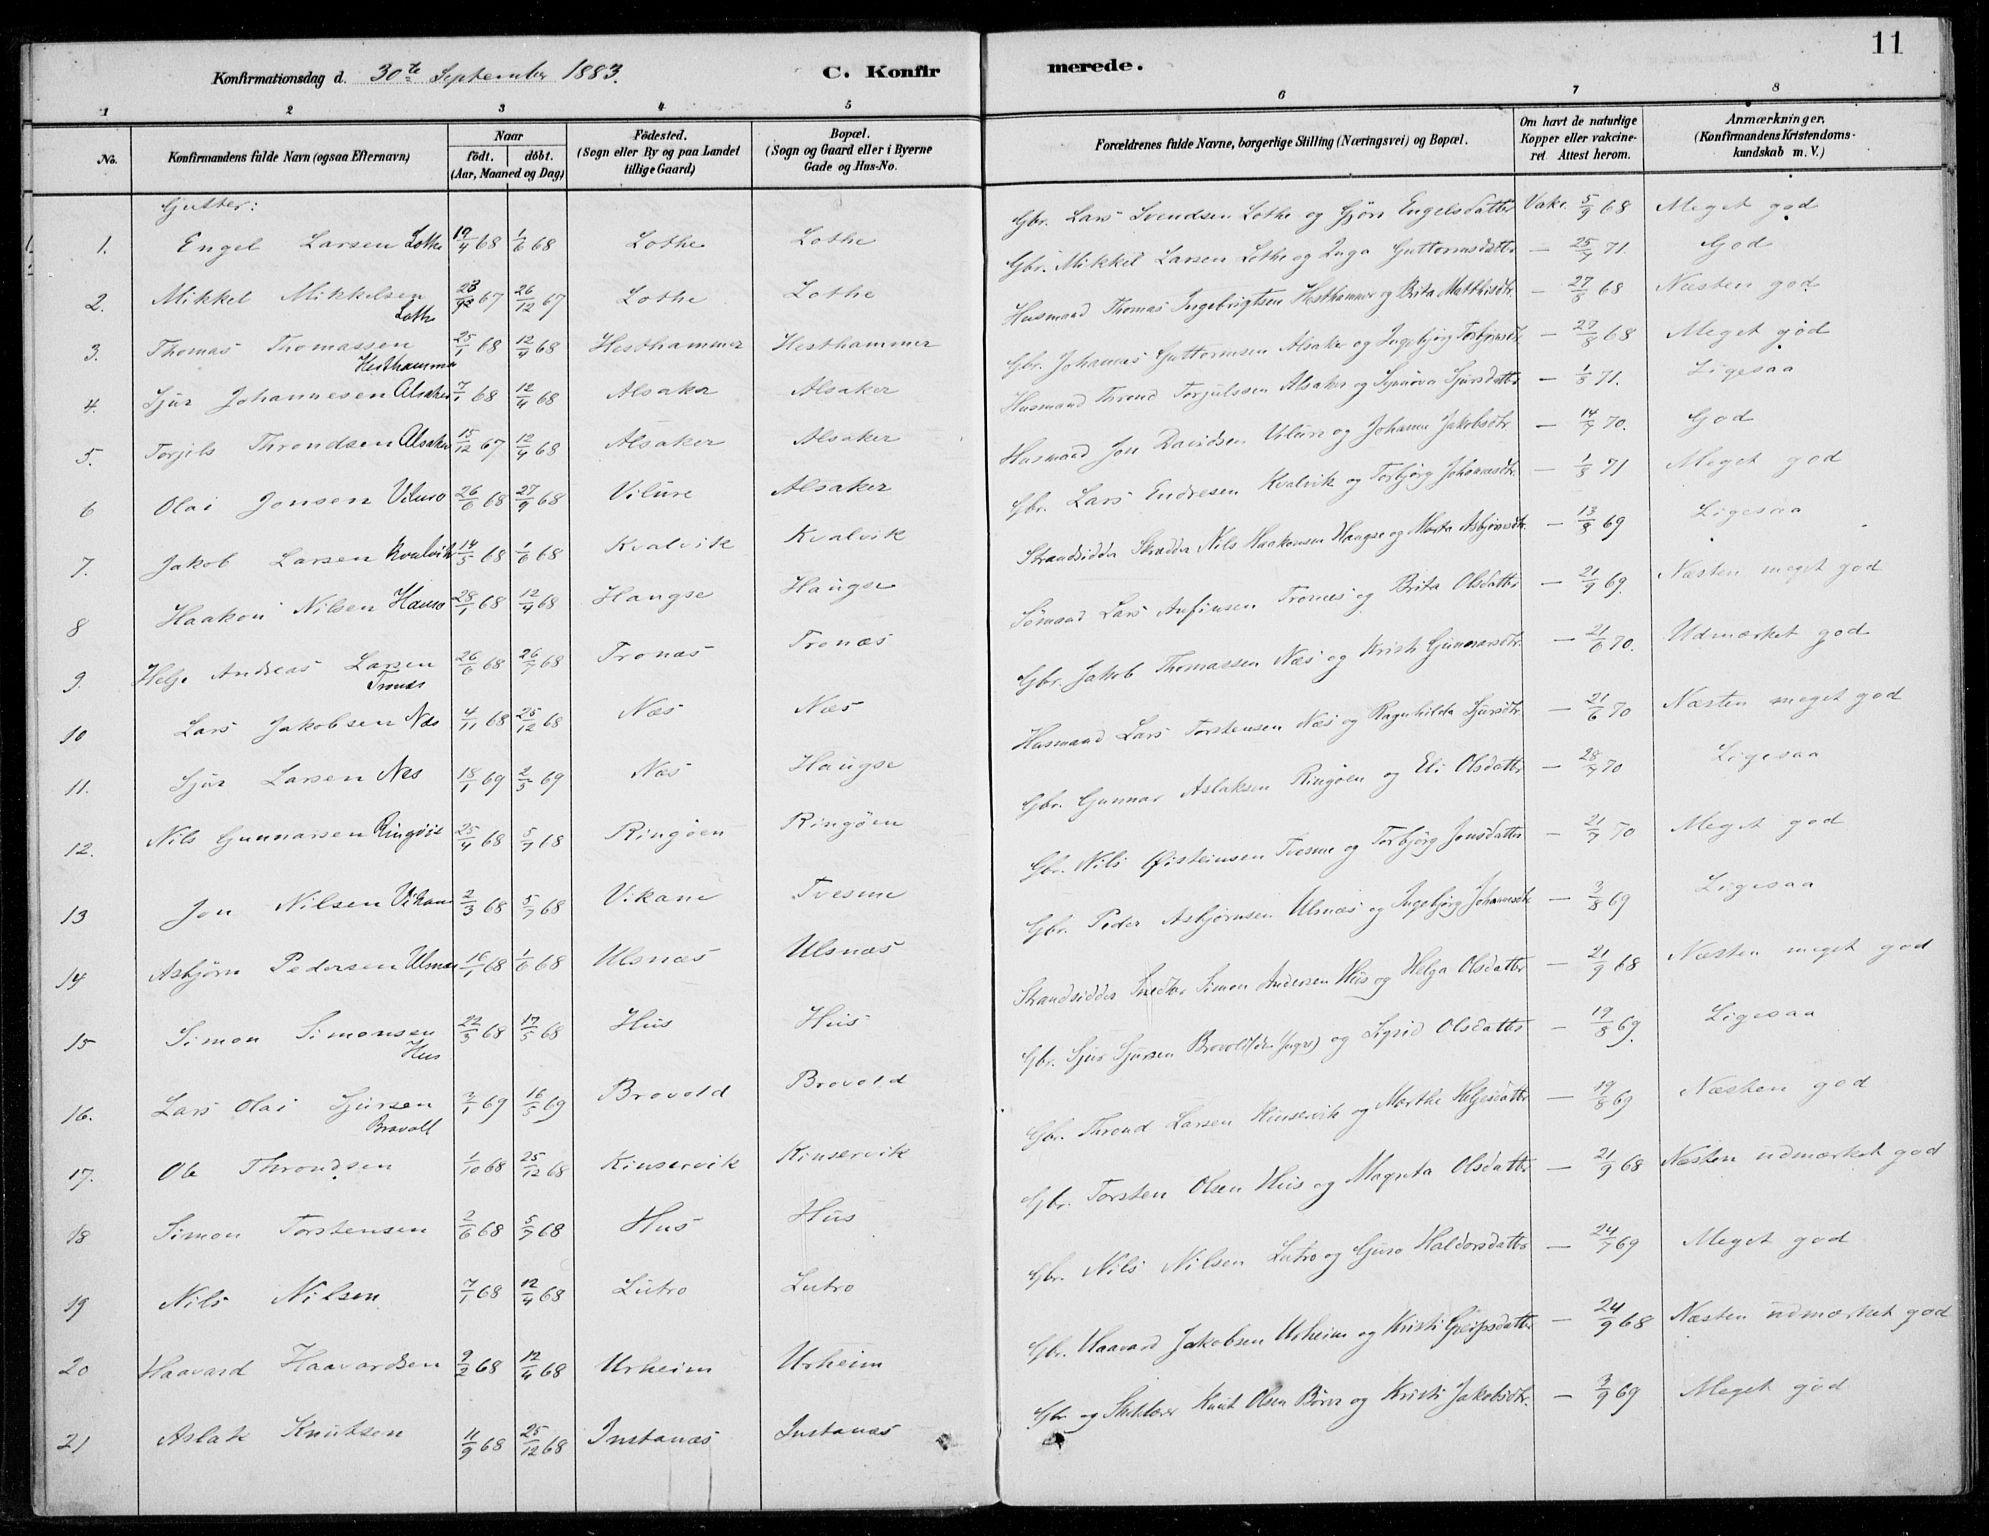 11
Konfirmationsdag d. 30te September 1883. C. Konfirmerede.
1 2 3 4 5 6 7 8
No. Konfirmandens fulde Navn (ogsaa Efternavn) Naar født. døbt. (Aar, Maaned og Dag) Fødested. (Sogn eller By og paa Landet tillige Gaard) Bopæl. (Sogn og Gaard eller i Byerne Gade og Hus-No. Forældrenes fulde Navne, borgerlige Stilling (Næringsvei) og Bopæl. Om havt de naturlige Kopper eller vakcineret. Attest herom. Anmærkninger. (Konfirmandens Kristendomskundskab m. V.)
Gutter:
1. Engel Larsen Lothe 19/4 68 1/6 68 Lothe Lothe Gbr. Lars Svendsen Lothe og Gjøri Engelsdatter Vakc. 5/9 68 Meget god
2. Mikkel Mikkelsen Lothe 26/12 67 Lothe Lothe Gbr. Mikkel Larsen Lothe og Inga Guttormsdatter — 25/7 71. God
3. Thomas Thomassen Hesthammer 25/1 68 12/4 68 Hesthammer Hesthammer Husmand Thomas Ingebrigtsen Hesthammer og Brita Matthisdtr. — 27/8 68 Næsten god
4. Sjur Johannesen Alsaker 7/1 68 12/4 68 Alsaker Alsaker Gbr. Johannes Guttormsen Alsaker og Ingebjørg Torbjørnsdtr — 27/8 68 Meget god
5. Torjils Throndsen Alsaker 15/12 67 12/4 68 Alsaker Alsaker Husmand Thrond Torjulssen Alsaker og Synnøva Sjursdatter — 1/8 71. Ligesaa
6 Olai Jonsen Vilure 26/6 68 27/9 68 Vilure Alsaker Husmand Jon Davidsen Vilure og Johanne Jakobsdtr — 14/7 70. God
7. Jakob Larsen Kvalvik 14/5 68 1/6 68 Kvalvik Kvalvik Gbr. Lars Endresen Kvalvik og Torbjørg Johannesdtr. — 1/8 71 Meget god
8 Haakon Nilsen 28/1 68 12/4 68 Haugse Haugse Strandsidder Skrædder Nils Haakonsen Haugse og Marta Asbjørnsdtr. — 13/8 69 Ligesaa
9. Helje Andreas Larsen Tronæs 26/6 68 26/7 68 Tronæs Tronæs Sømand Lars Anfinsen Tronæs og Brita Olsdatter — 21/9 69. Næsten meget god
10 Lars Jakobsen Næs 4/11 68 25/12 68 Næs Næs Gbr. Jakob Thomassen Næs og Kristi Gunnarsdtr. — 21/6 70. Udmærket god
11. Sjur Larsen Næs 18/1 69 2/5 69 Næs Haugse Husmand Lars Torstensen Næs og Ragnhilda Sjursdtr. — 21/6 70 Næsten meget god
12. Nils Gunnarsen Ringøen 25/4 68 5/7 68 Ringøen Ringøen Gbr. Gunnar Aslaksen Ringøen og Eli Olsdatter — 28/7 70 Ligesaa
13 Jon Nilsen Vikane 2/3 68 5/7 68 Vikane Tvesme Gbr. Nils Øisteinsen Tvesme og Torbjørg Jonsdatter — 21/7 70 Meget god
14 Asbjørn Pedersen Ulsnæs 16/1 68 1/6 68 Ulsnæs Ulsnæs Gbr. Peder Asbjørnsen Ulsnæs og Ingebjørg Johannesdtr — 3/8 69 Ligesaa
15 Simon Simonsen Hus 22/3 68 17/5 68 Hus Hus Strandsidder Snedker Simon Andersen Hus og Helga Olsdatter — 21/9 68 Næsten meget god
16. Lars Olai Sjursen Bravoll 3/1 69 16/5 69 Bravold Bravold Gbr. Sjur Sjursen Bravold (den Yngre) og Sigrid Olsdatter — 19/8 69. Ligesaa
17. Ole Throndsen 1/10 68 25/12 68 Kinservik Kinservik Gbr. Thrond Larsen Kinservik og Marthe Heljesdatter — 19/8 69 Næsten god
18 Simon Torstensen 2/6 68 5/7 68 Hus Hus Gbr. Torsten Olsen Hus og Magreta Olsdatter — 21/9 68 Næsten udmærket god
19 Nils Nilsen 7/1 68 12/4 68 Lutro Lutro Gbr. Nils Nilsen Lutro og Guro Haldorsdatter — 24/7 69 Meget god
20 Haavard Haavardsen 9/2 68 12/4 68 Urheim Urheim Gbr. Haavard Jakobsen Urheim og Kristi Gleipsdatter — 24/9 68 Næsten udmærket god
21 Aslak Knutsen 11/9 68 25/12 68 Instanæs Instanæs Gbr og Knut Olsen Børve og Kristi Jakobsdtr. — 3/9 69 Meget god